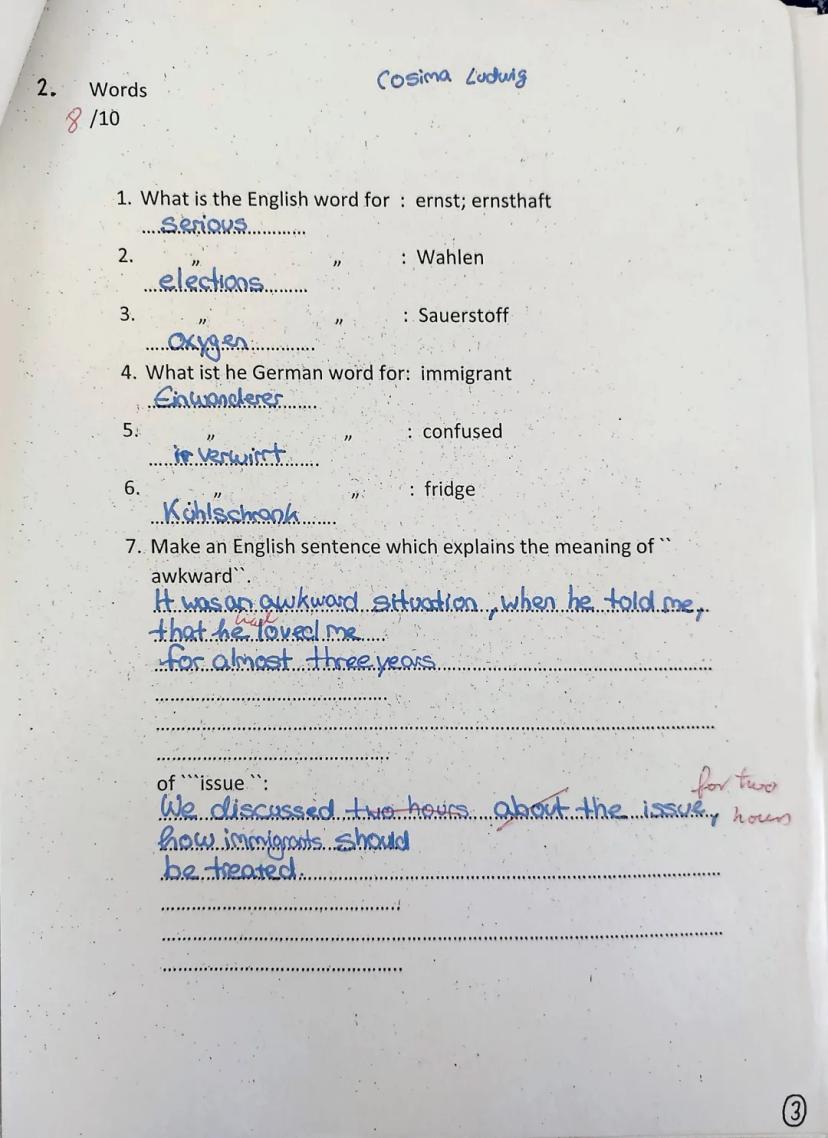 Cosima Ludwig
2. Words
8 /10
1. What is the English word for : ernst; ernsthaft
....serious............
2. „ „ : Wahlen
...elections.........
3. „ „ : Sauerstoff
.....oxygen...............
4. What ist he German word for: immigrant
...Einwanderer.......
5. „ „ : confused
..... verwirrt.......
6. „ „ : fridge
...Kühlschrank........
7. Make an English sentence which explains the meaning of ``
awkward``.
It was an awkward situation, when he told me,
had
that he loved me....
for almost three years..............................................
................................................
..............................................................................................
................................................
of ```issue``:
for two
We discussed two hours about the issue, hours
how immigrants should
be treated.......................................................................
................................................
..............................................................................................
................................................
3